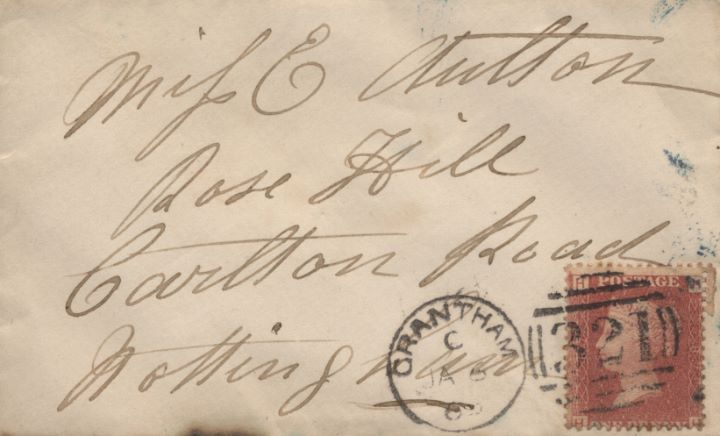 Miss E Aulton
Rose Hill
Carlton Road
Nottingham
GRANTHAM
C
JA 6
POSTAGE
321